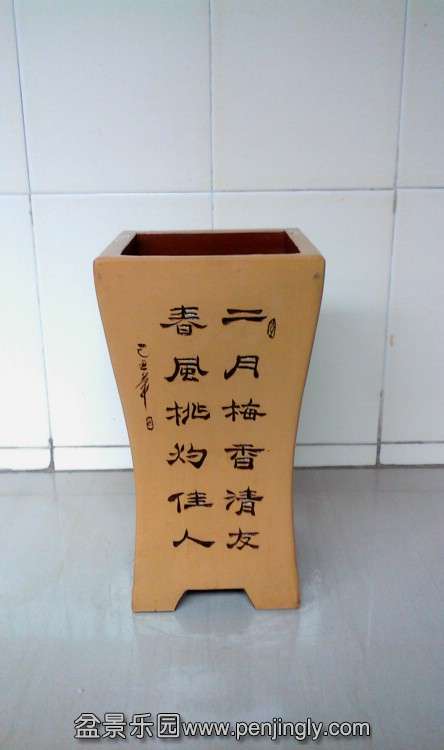 二月梅香清友
春風桃灼佳人
己丑年
盆景乐园www.penjingly.com